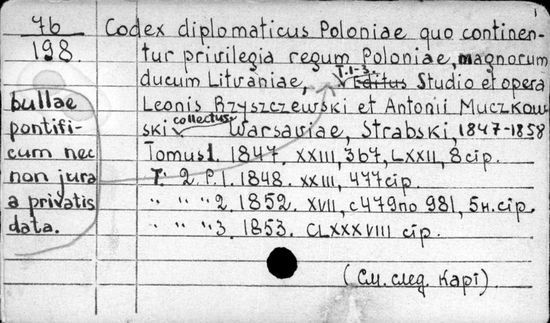 1
7б
198.
Codex diplomaticus Poloniae quo continen-
tur privilegia regum Poloniae, magnorum
ducum Lituaniae,
T.1-3.
Editus Studio et opera
bullae
pontifi-
cum nec
non jura
a privatis
data.
Leonis Rzyszczewski et Antonii Muczkow-
ski collectus Warsaviae, Strabski, 1847-1858
Tomus 1. 1847. XXIII, 367, LXXII, 8 cip.
T. 2. P. 1. 1848. XXIII, 477 cip.
" " " 2. 1852. XVII, c 479 по 981, 5н. cip.
" " " 3. 1853. CLXXXVIII cip.
(См. след. карт).